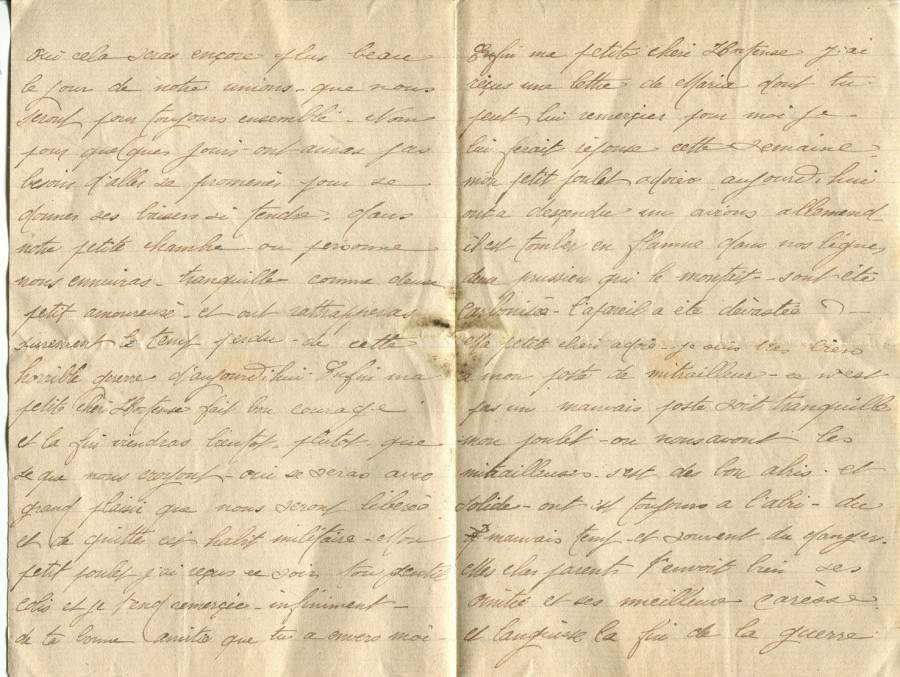 Oui cela seras encore plus beau
le jour de notre unions - que nous
seront pour toujours ensemble - Nous
pour quelques jours - ont auras pas
besoin d'aller se promener pour se
donner ses baisers si tendre, dans
notre petite chambre ou personne
nous ennuiras - tranquille comme deux
petit amoureuse - et ont rattrapperas
surement le temp perdu - de cette
horrible guerre d'aujourd'hui. Enfin ma
petite chéri Hortense fait bon courage
et la fin viendras bientot - plutot - que
se que nous croyont - oui se seras avec
grand plaisir que nous seront libérés
et de quitter cet habit militaire - Mon
petit poulet j'ai reçus ce soir ton gentil
colis et je t'end remerçie - infiniment -
de ta bonne amitié que tu a envers moi -
Enfin ma petite chéri Hortense j'ai
reçus une lettre de Maria dont tu
peut lui remerçier pour moi je
lui ferait réponse cette semaine
mon petit poulet adorée aujourd'hui
ont a desçendu un avions allemand
il est tomber en flamme dans nos lignes
deux prussien qui le montait - sont été
carbonisée - l'apareil a été dévastée -
Ma petite chéri adorée - je suis très biens
a mon poste de mitrailleur - ce n'est
pas un mauvais poste soit tranquille
mon poulet - ou nous avont les
mitrailleuses - s'est des bon abris - et
solide - ont est toujours a l'abri - du
mauvais temp - et souvent du danger.
Mes cher parents t'envoit bien ses
amitié et ses meilleure carèsse
et languisse la fin de la guerre